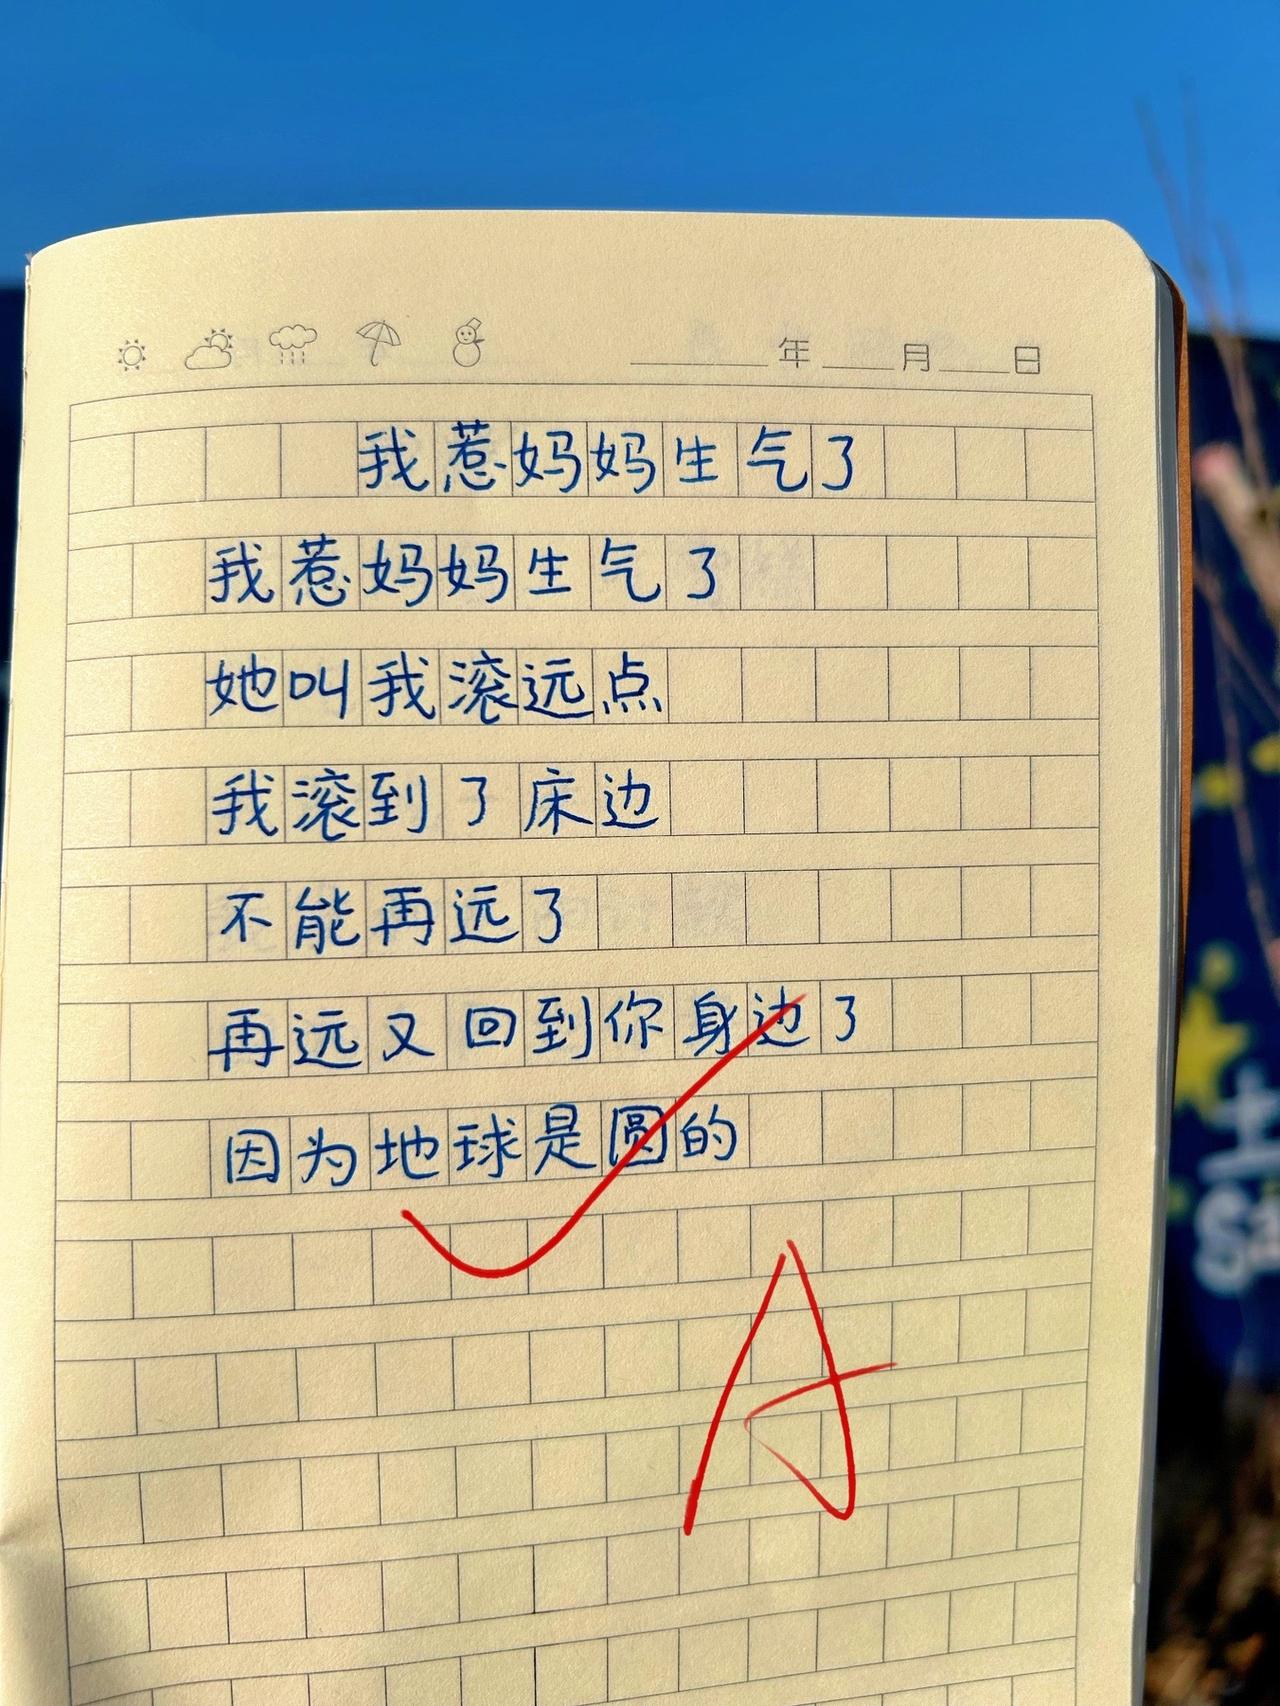 年 月 日
我惹妈妈生气了
我惹妈妈生气了
她叫我滚远点
我滚到了床边
不能再远了
再远又回到你身边了
因为地球是圆的
A